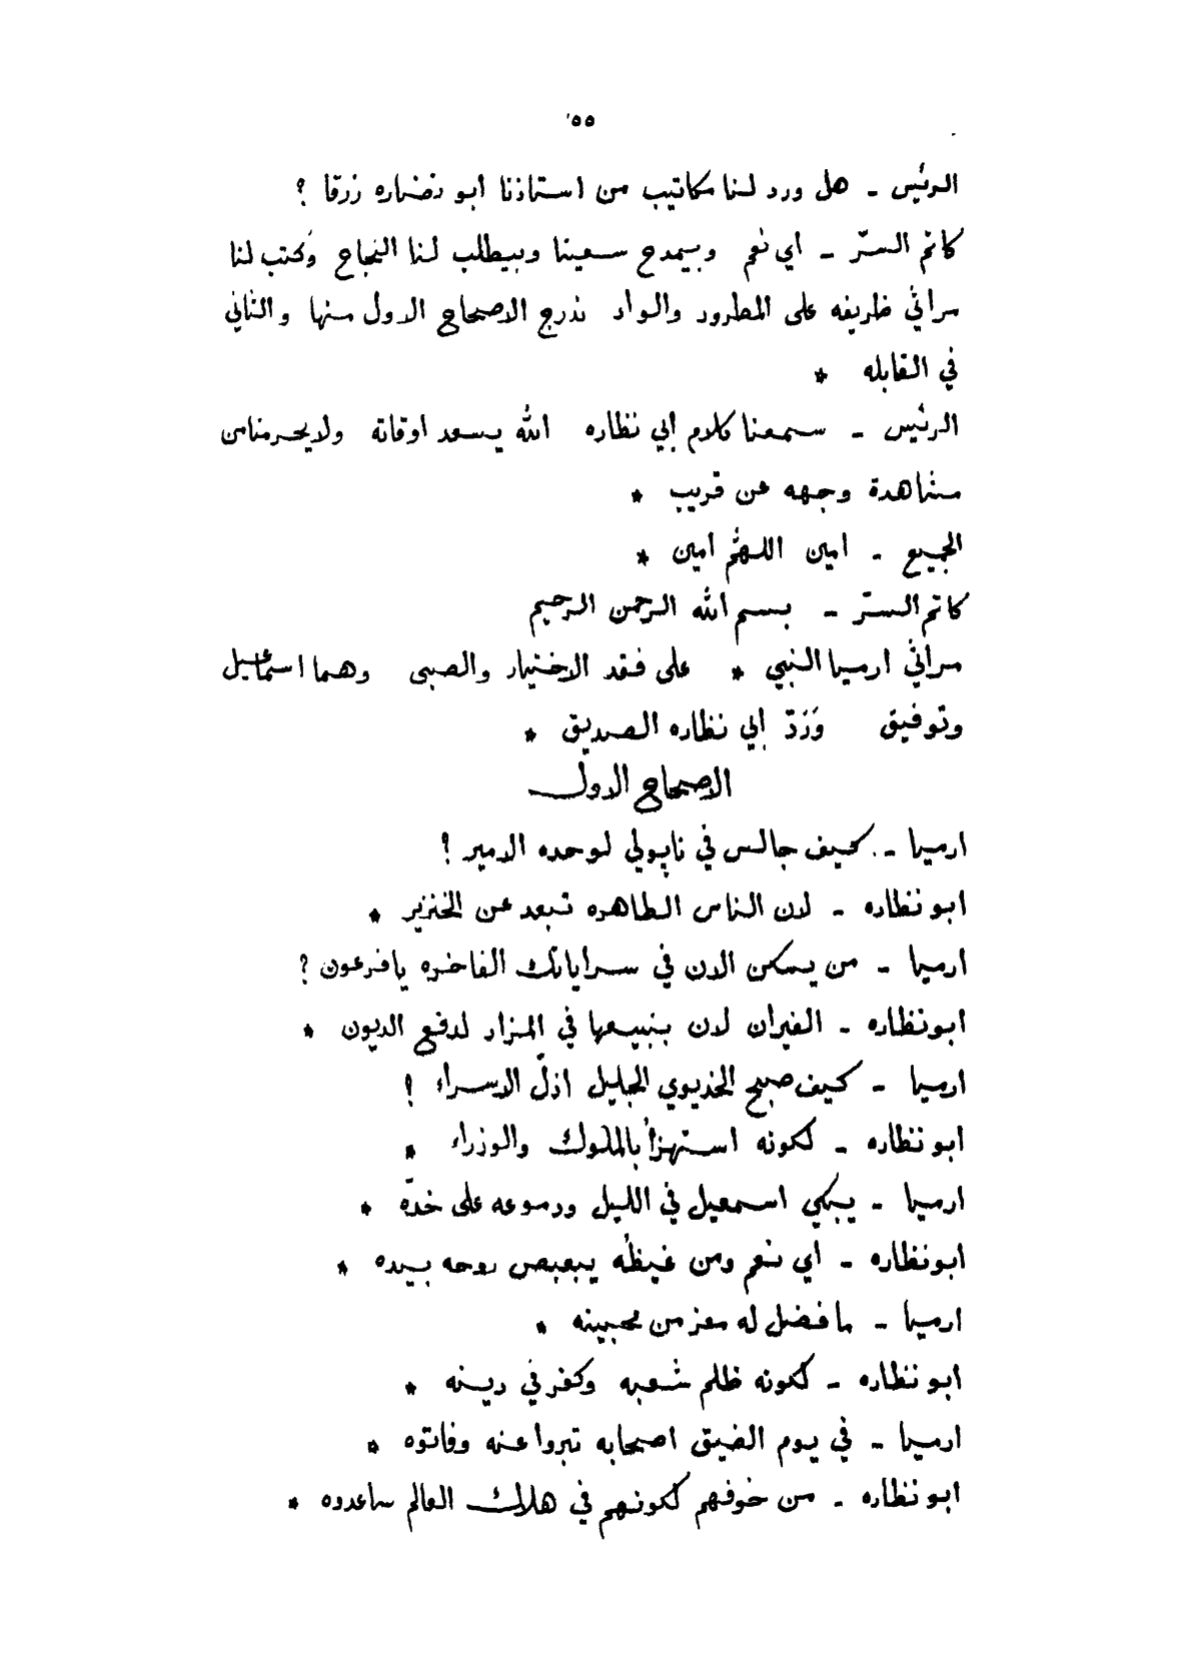 ٥٥
الرئيس ـ هل ورد لنا مكاتيب من استاذنا ابو نضاره زرقا ؟
كاتم السرّ ـ اي نعم وبيمدح سعينا وبيطلب لنا النجاح وكتب لنا
مراثي ظريفه على المطرود والواد ندرج الاصحاح الاول منها والثاني
في القابله *
الرئيس ـ سمعنا كلام أبي نظاره الله يسعد اوقاته ولا يحرمنا من
مشاهدة وجهه عن قريب *
الجميع ـ امين اللهم امين *
كاتم السرّ ـ بسم الله الرحمن الرحيم
مراثي ارميا النبي * على فقد الاختيار والصبى وهما اسماعيل
وتوفيق وَرَدّ ابي نظاره الصديق *
الاصحاح الاول
ارميا ـ كيف جالس في ناپولي لوحده الامير !
ابو نظاره ـ لان الناس الطاهره تبعد عن الخنزير *
ارميا ـ من يسكن الان في سراياتك الفاخره يا فرعون ؟
ابو نظاره ـ الفيران لان بنبيعها في المزاد لدفع الديون *
ارميا ـ كيف صبح الخديوي الجليل اذلّ الاسراء !
ابو نظاره ـ لكونه استهزأ بالملوك والوزراء *
ارميا ـ يبكي اسمعيل في الليل ودموعه على خدّه *
ابو نظاره ـ اي نعم ومن غيظه يبعبص روحه بيده *
ارميا ـ ما فضل له معز من محبينه *
ابو نظاره ـ لكونه ظلم شعبه وكفر في دينه *
ارميا ـ في يوم الضيق اصحابه تبروا عنه وفاتوه *
ابو نظاره ـ من خوفهم لكونهم في هلاك العالم ساعدوه *